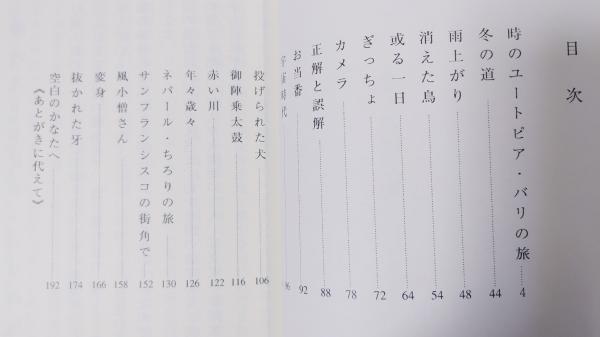 目次
時のユートピア・バリの旅 4
冬の道 44
雨上がり 48
消えた鳥 54
或る一日 64
ぎっちょ 72
カメラ 78
正解と誤解 88
お当番 92
投げられた犬 106
御陣乗太鼓 116
赤い川 122
年々歳々 126
ネパール・ちろりの旅 130
サンフランシスコの街角で 152
風小僧さん 158
変身 166
抜かれた牙 174
空白のかなたへ 192
《あとがきに代えて》